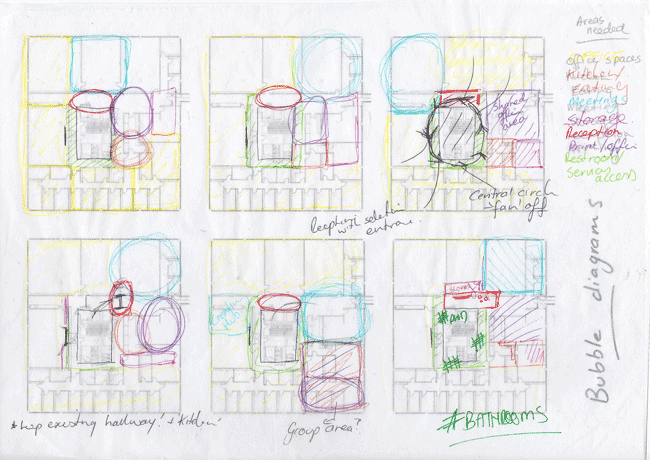 Areas
needed
office spaces
Kitchen
Eating
Meetings
Storage
Reception
Print/office
Restroom
Service
access
Shared
office
area
Central circ
→ fan off
Reception
with
entrance.
* keep existing hallway! + 'kitchen'
Group area?
#BATHROOMS
Bubble diagrams